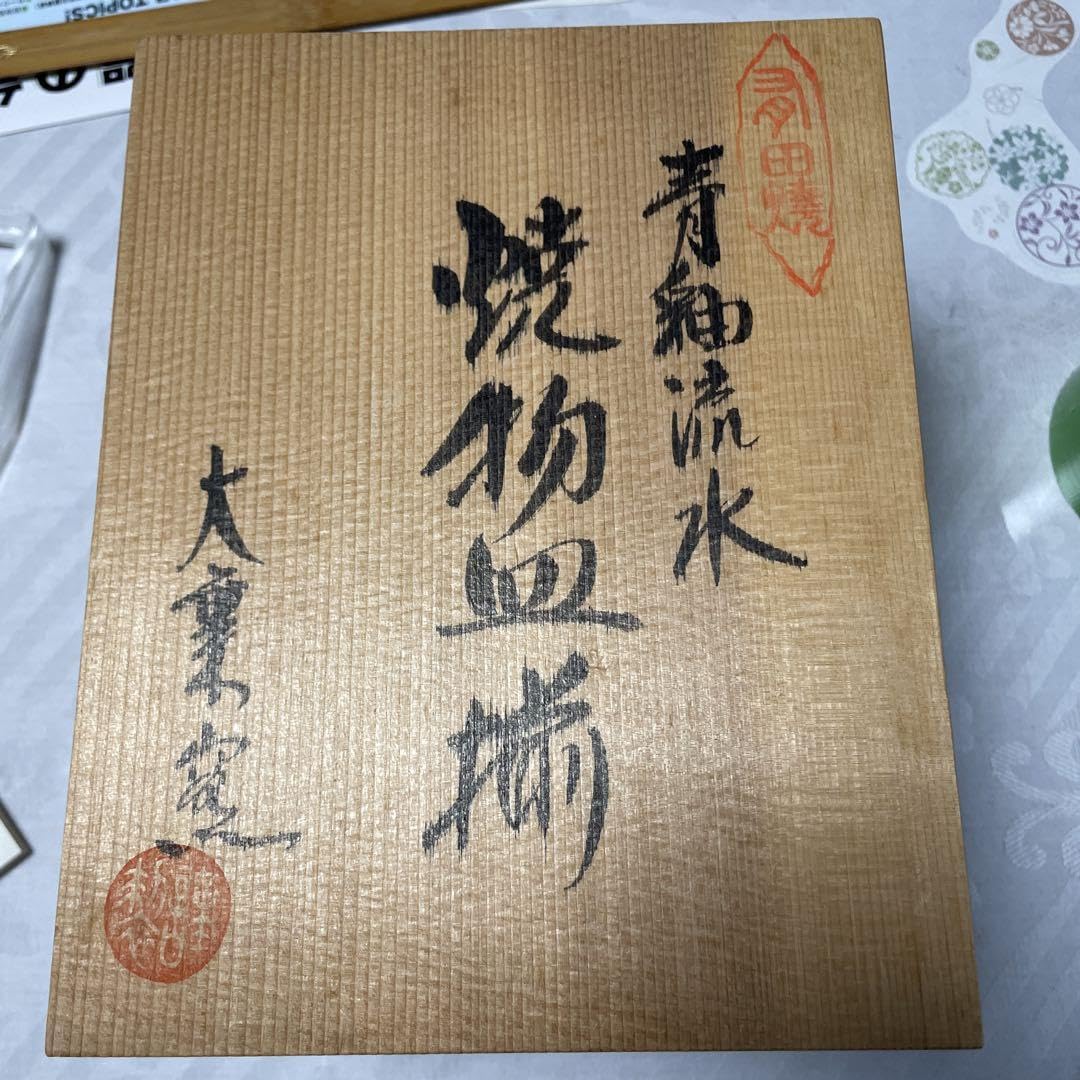 TOPICS!
有田焼
青釉流水
焼物皿揃
大重窯